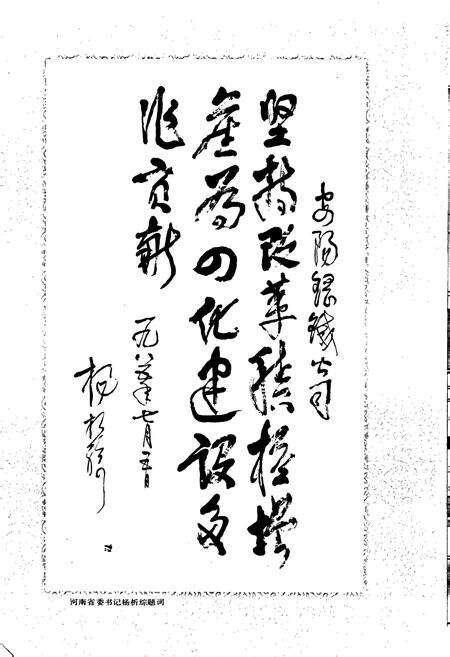 安阳钢铁公司
坚持改革积极增
产为四化建设多
作贡献
一九八五年七月五日
杨析综
河南省委书记杨析综题词